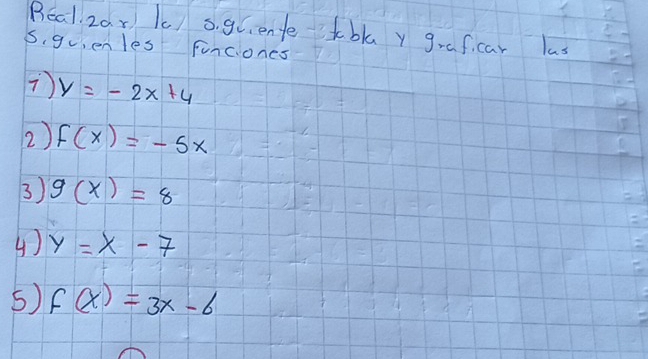 Realizar la siguiente tabla y graficar las
siguientes funciones
1) y = - 2x + 4
2) f(x) = - 5x
3) g(x) = 8
4) y = x - 7
5) f(x) = 3x - 6